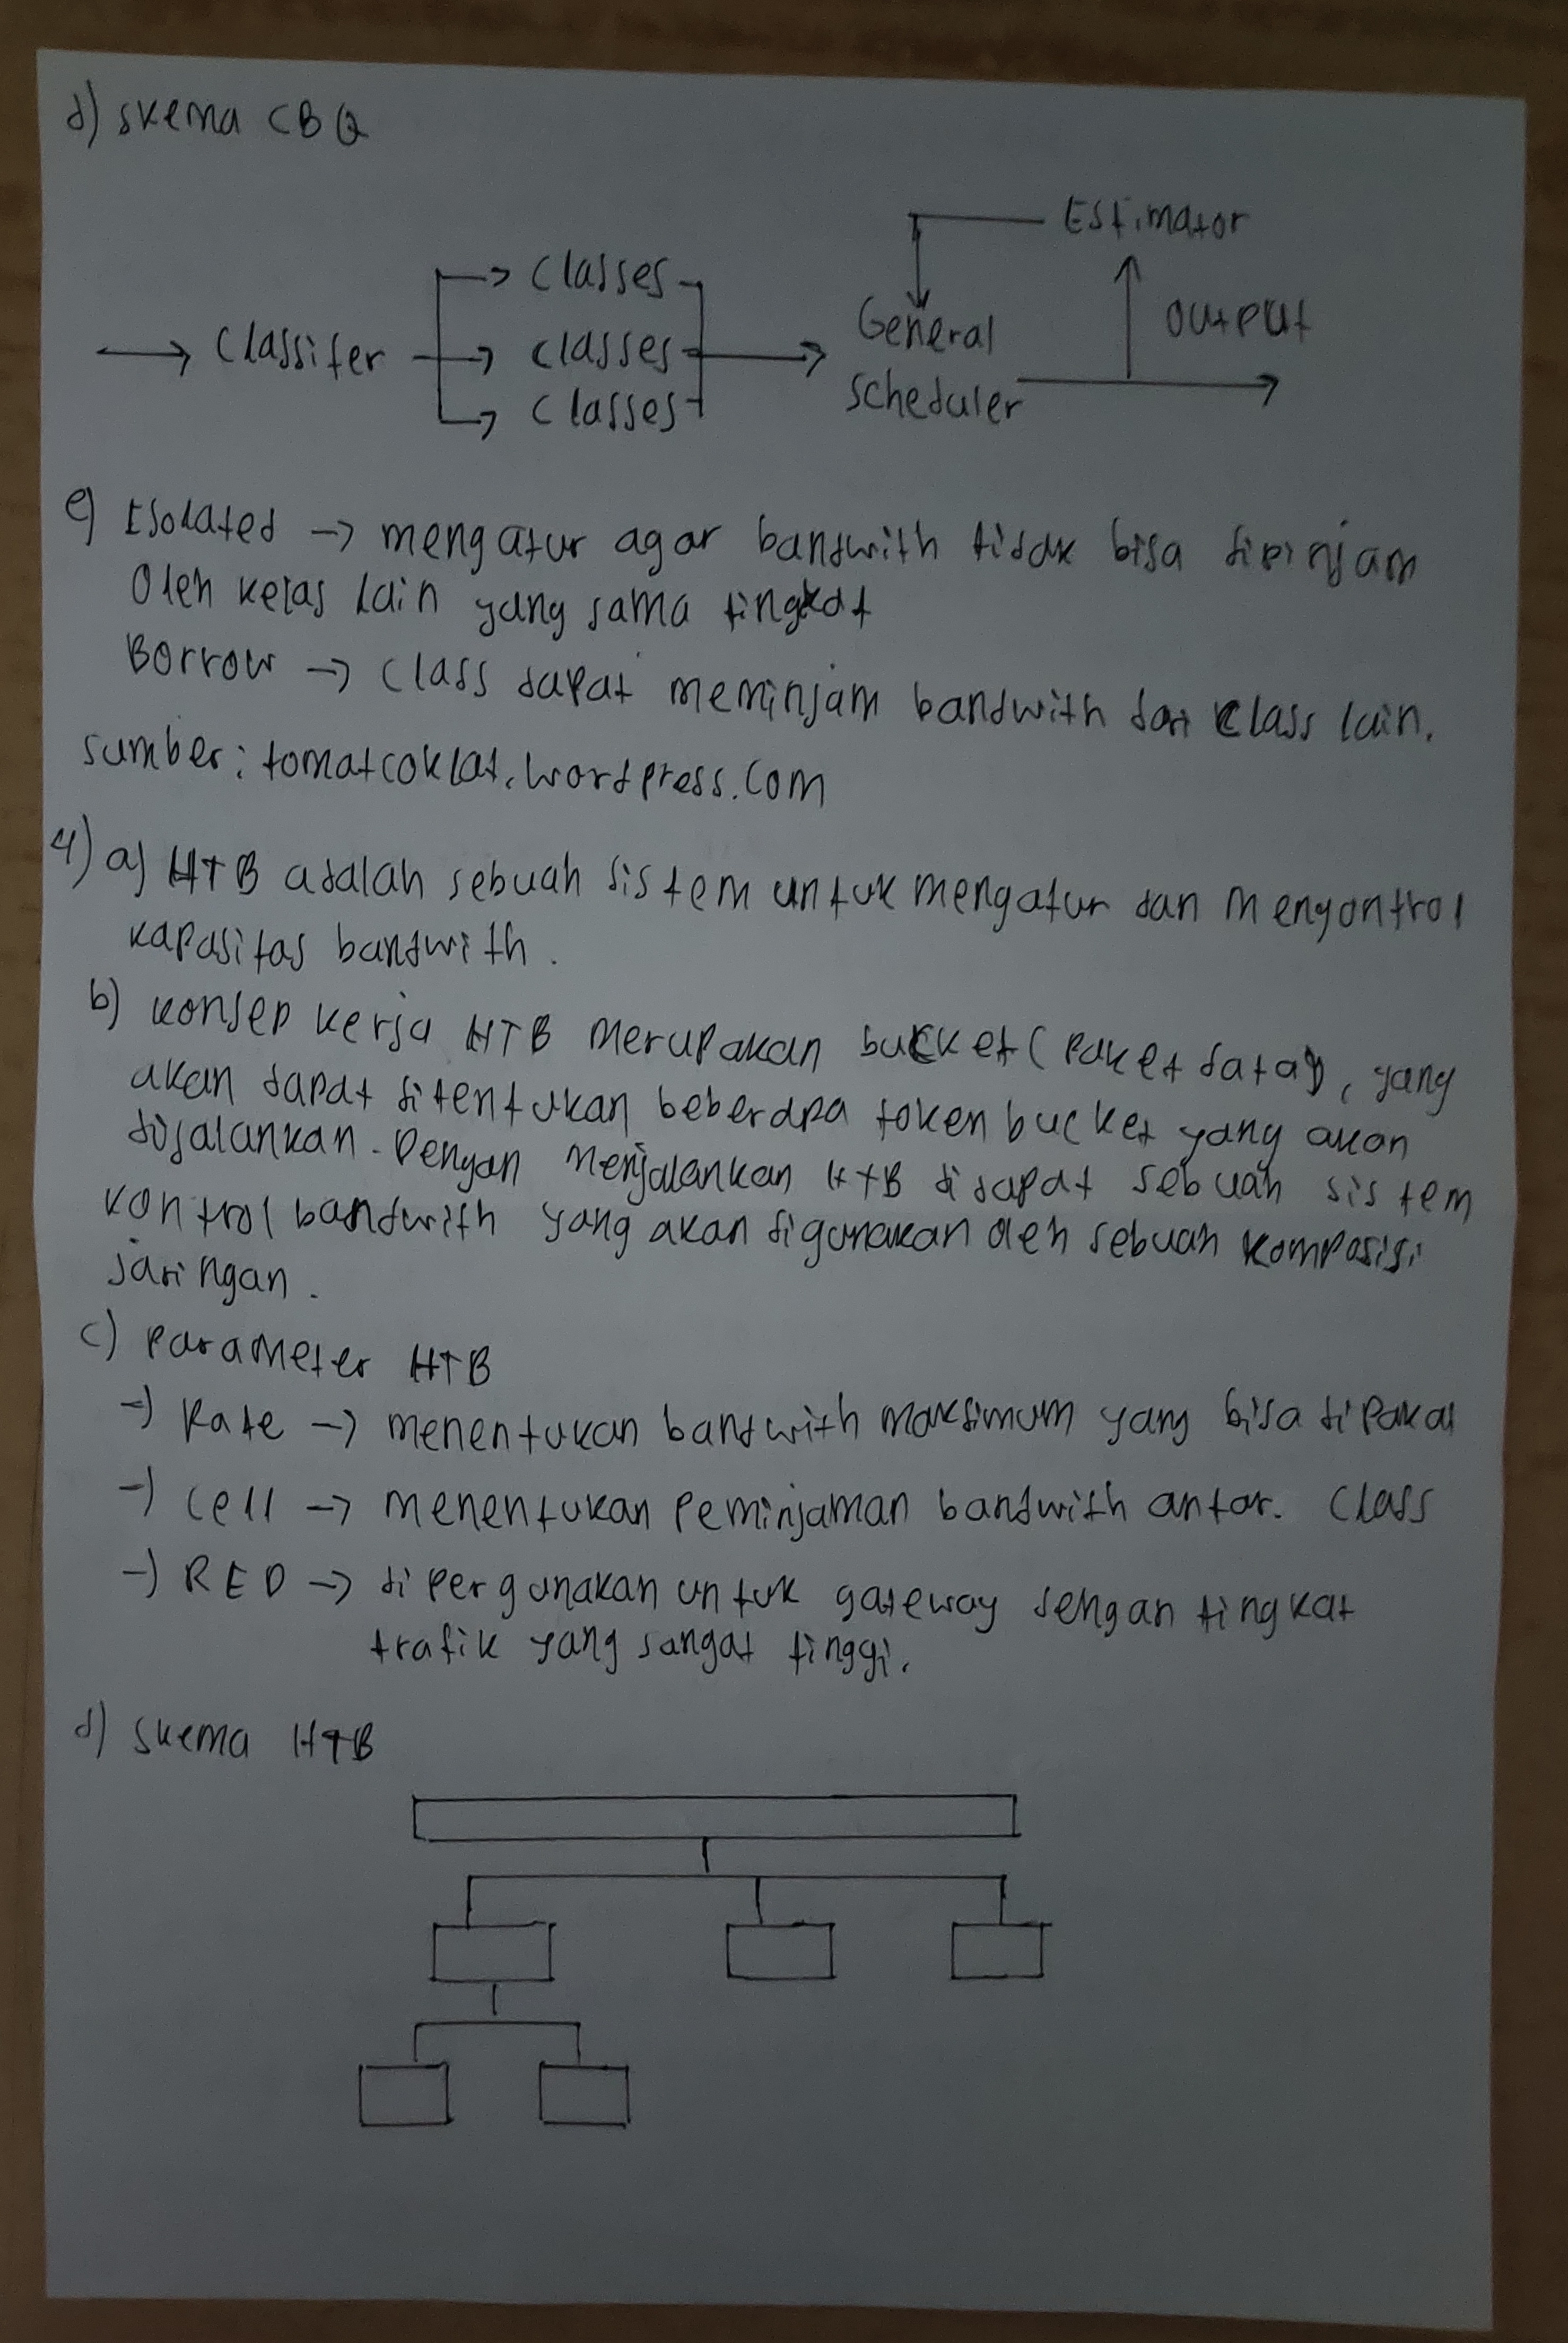 d) skema CBQ
Estimator
→ Classifer → Classes → General output
→ classes scheduler
→ Classes
e) Isolated → mengatur agar bandwith tidak bisa dipinjam
Oleh kelas lain yang sama tingkat
Borrow → Class dapat meminjam bandwith dari class lain.
sumber: tomatcoklat.wordpress.com
4) a) HTB adalah sebuah sistem untuk mengatur dan menyontrol
kapasitas bandwith.
b) konsep kerja HTB merupakan bucket (paket data), yang
akan dapat ditentukan beberapa token bucket yang akan
dijalankan. Dengan menjalankan HTB didapat sebuah sistem
kontrol bandwith yang akan digunakan oleh sebuah komposisi
jaringan.
c) Parameter HTB
-) Rate → menentukan bandwith maksimum yang bisa dipakai
-) Cell → menentukan peminjaman bandwith antar. Class
-) RED → dipergunakan untuk gateway dengan tingkat
trafik yang sangat tinggi.
d) Skema HTB